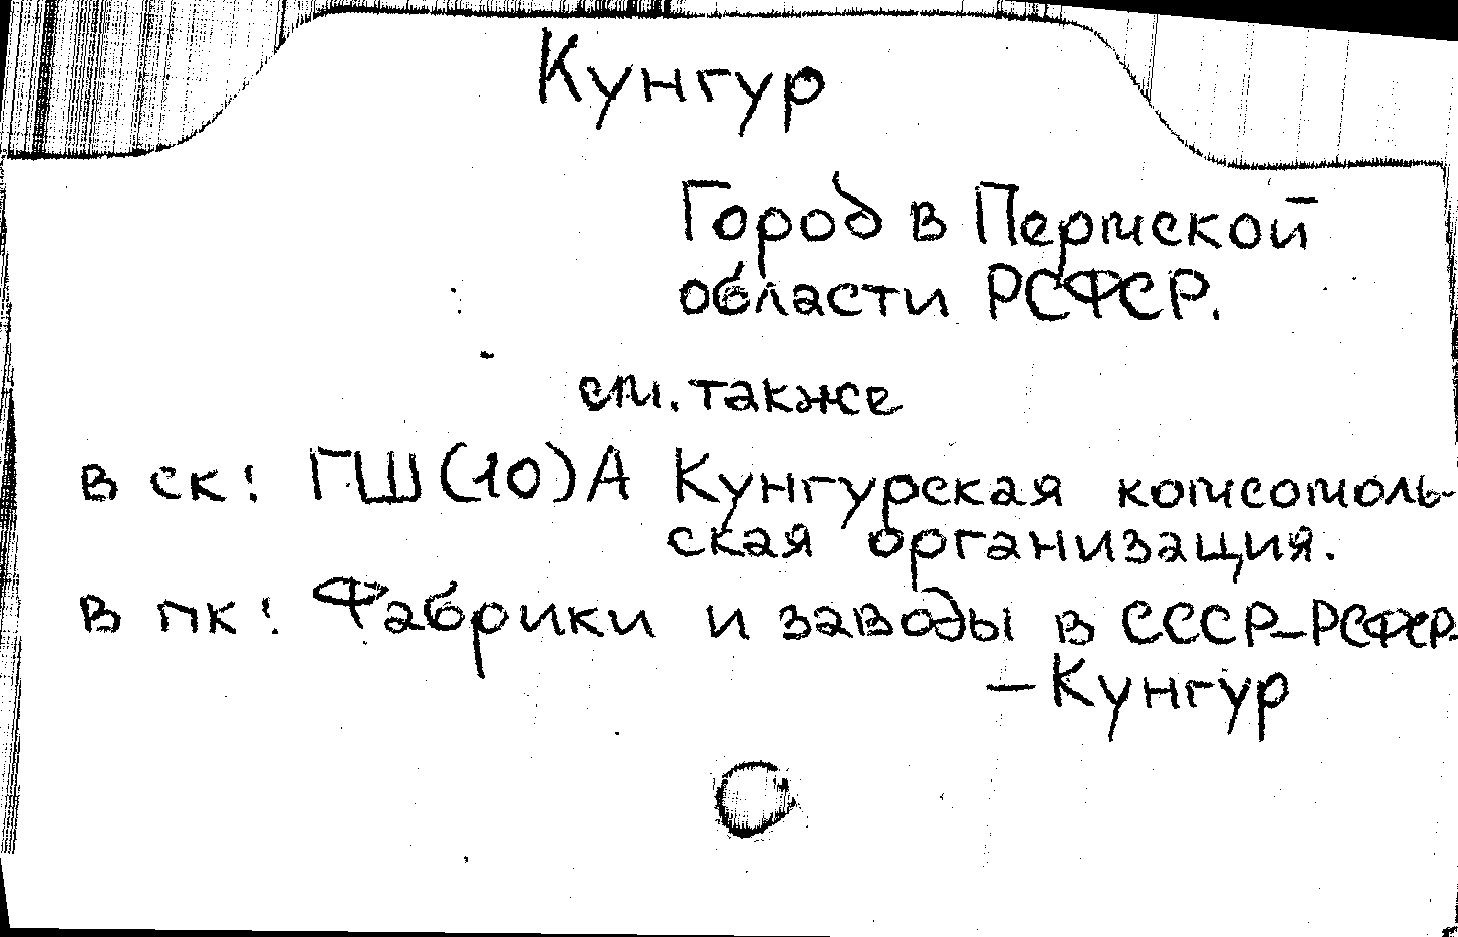 Кунгур
Город в Пермской
области РСФСР.
см. также
в ск: ГШ(10)А Кунгурская комсомоль-
ская организация.
в пк: Фабрики и заводы в СССР-РСФСР-
-Кунгур